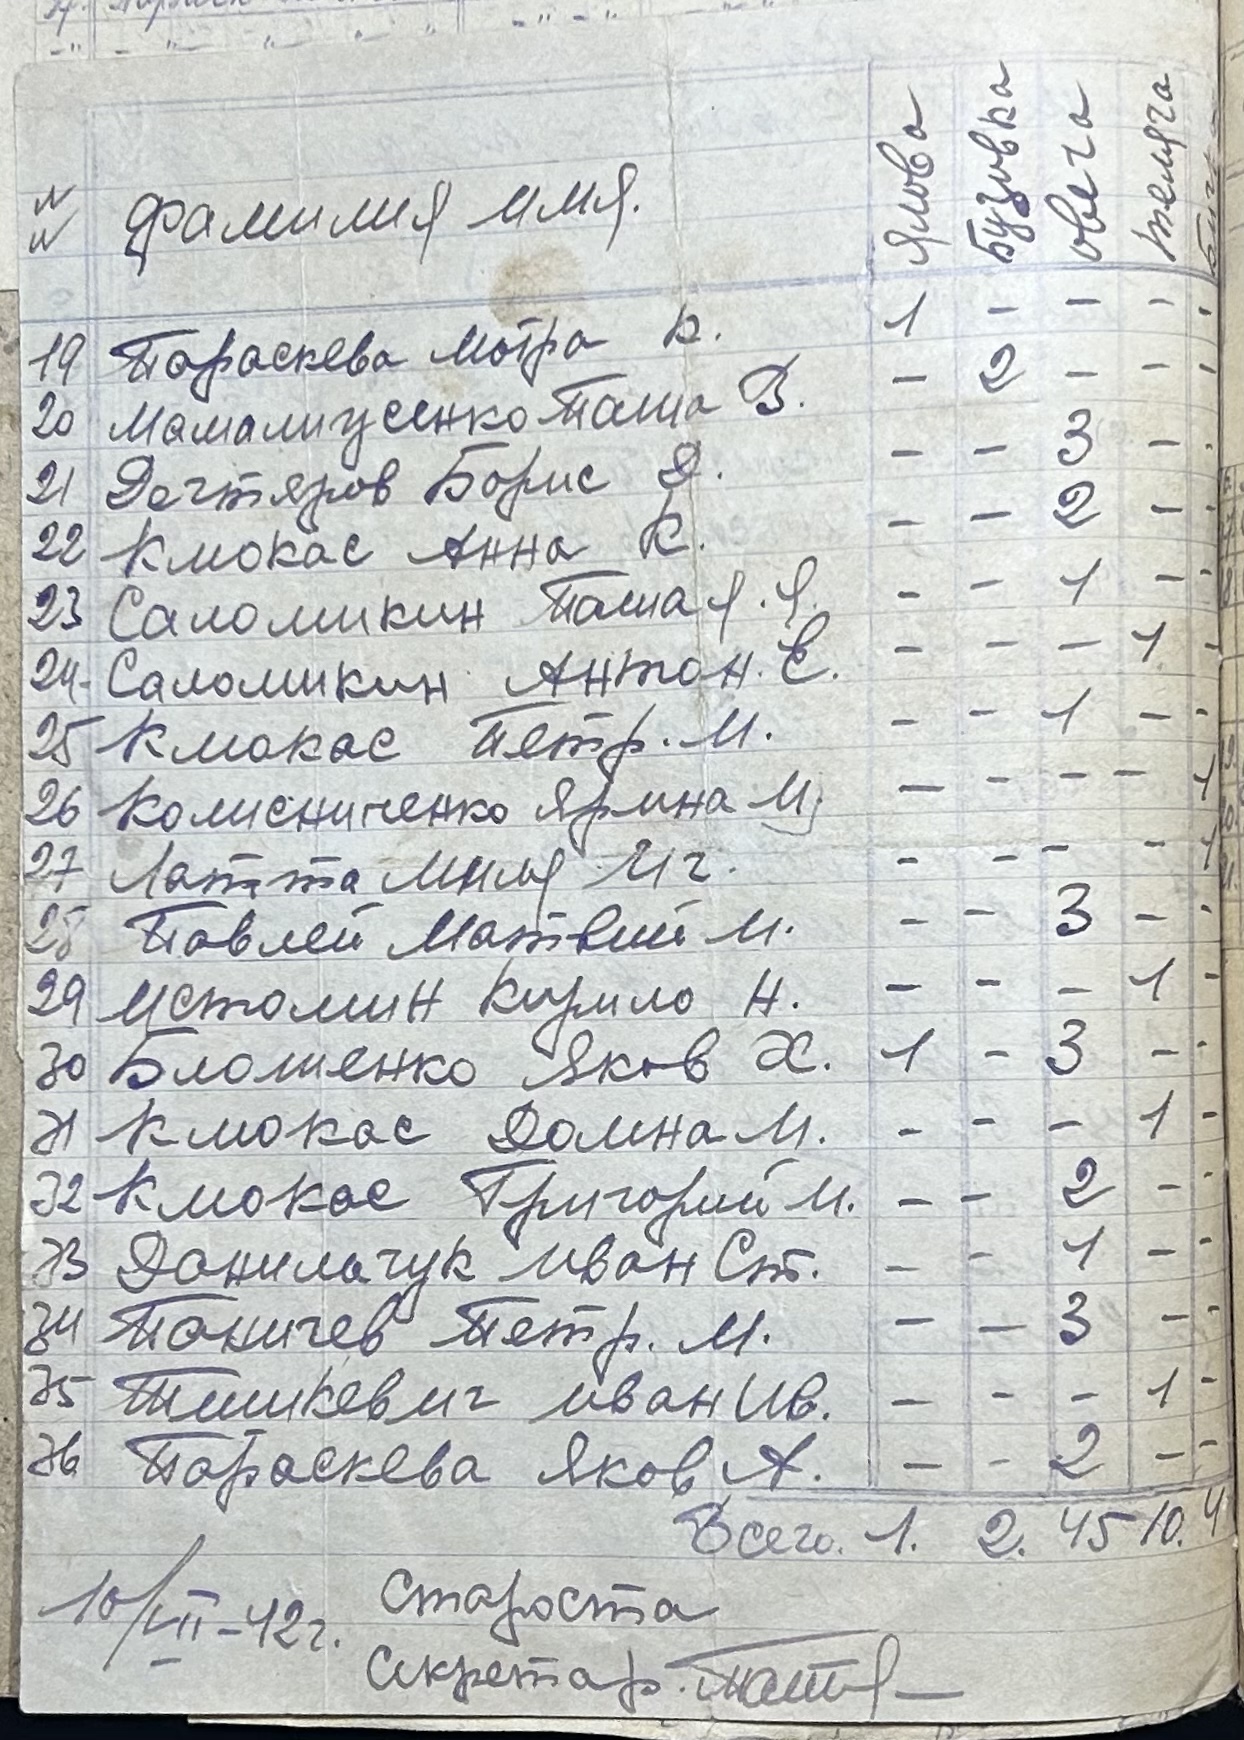 № фамилия имя. Ялова Бузовка овеча теляча
19 Параскева Мотра К. 1 - - - -
20 Мамалигуенко Паша В. - 2 - - -
21 Дегтяров Борис Д. - - 3 - -
22 Кмокас Анна К. - - 2 - -
23 Саломикин Паша Я. Я. - - 1 - -
24. Саломикин Антон. Е. - - - 1 -
25 Кмокас Петр. М. - - 1 - -
26 Колисниченко Ярина М - - - - 1
27 Лапта Миля Иг. - - - - 1
28 Павлей Матвий М. - - 3 - -
29 Истомин Кирило Н. - - - 1 -
30 Блошенко Яков Х. 1 - 3 - -
31 Кмокас Домна М. - - - 1 -
32 Кмокас Григорий М. - - 2 - -
33 Данилачук Иван Ст. - - 1 - -
34 Паничев Петр. М. - - 3 - -
35 Тишкевич Иван Ив. - - - 1 -
36 Параскева Яков А. - - 2 - -
Всего. 1. 2. 45 10. 4
10/VII-42г. Староста
Секретар.